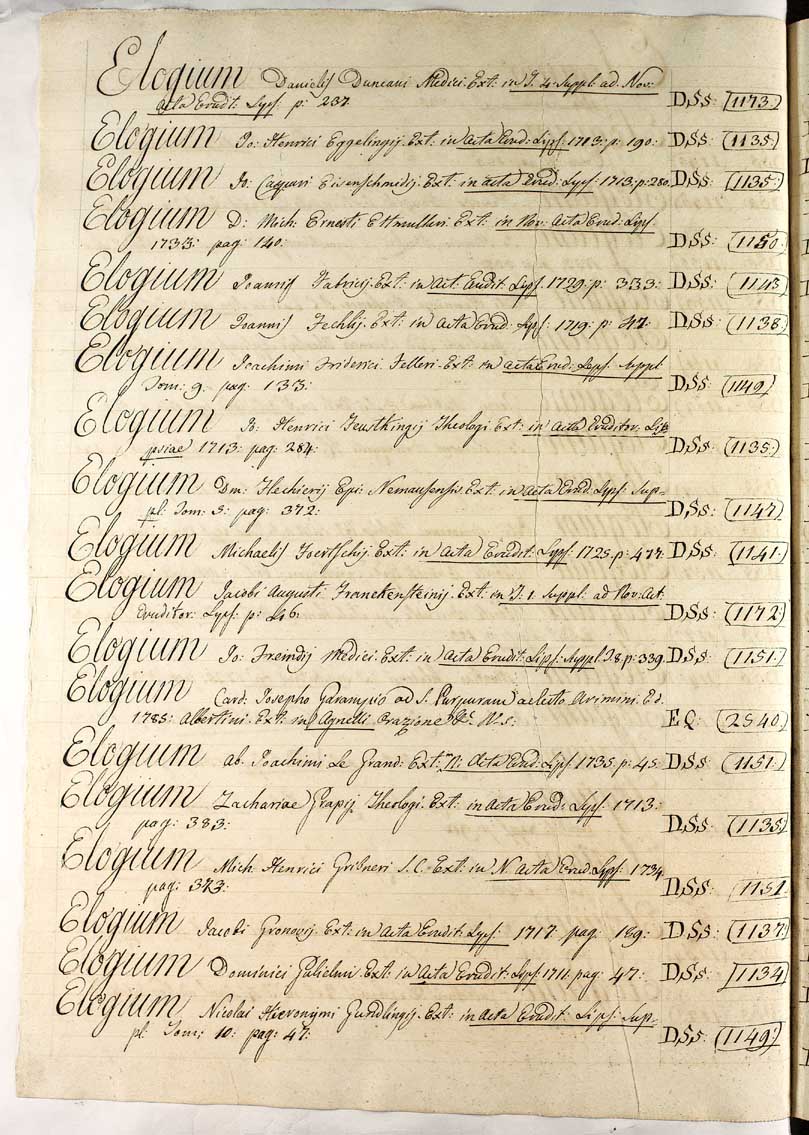 Elogium Danielis Duncani Medici. Ext: in T. 4. Suppl. ad Nov:
acta Erudit: Lyps: p: 237. D,Ss: (1173.)
Elogium Jo: Henrici Eggelingij. Ext: in Acta Erud: Lyps: 1713: p: 190: D,Ss: (1135.)
Elogium Jo: Caspari Eisenschmidij. Ext: in acta Erud: Lyps: 1713: p: 280. D,Ss: (1135.)
Elogium D: Mich: Ernesti Ettmulleri. Ext: in Nov: Acta Erud: Lyps:
1733: pag: 140: D,Ss: (1150.)
Elogium Joannis Fabricij. Ext: in Act: Erudit: Lyps: 1729: p: 333: D,Ss: (1143
Elogium Joannis Fechtij. Ext: in Acta Erud: Lyps: 1719: p: 47: D,Ss: (1138.)
Elogium Joachimi Friderici Felleri. Ext: in Acta Erud: Lyps: Suppl:
Tom: 9. pag: 133: D,Ss: (1149.)
Elogium Jo: Henrici Feustkingij Theologi Ext: in Acta Eruditor: Lip
psiae 1713: pag: 284: D,Ss: (1135.)
Elogium Dni: Flechierij Epi: Nemausensis. Ext: in Acta Erud: Lyps: Sup-
pl: Tom: 5: pag: 372: D,Ss: (1147.)
Elogium Michaelis Foertschij. Ext: in Acta Erudit: Lyps: 1725: p: 477: D,Ss: (1141.)
Elogium Jacobi Augusti Franckensteinij. Ext: in T: 1. Suppl: ad Nov: Act:
Eruditor: Lyps: p: D,Ss: (1172.)
Elogium Jo: Freindij Medici. Ext: in Acta Erudit: Lips: Suppl. T. 8. p: 339. D,Ss: (1151.)
Elogium Card: Josepho Garampio ad S. Purpuram adlecto Arimini. Ed.
1785: Albertini. Ext: in Agnelli Orazione EQ: (2540.)
Elogium ab. Joachimi Le Grand: Ext: N: Acta Erud: Lyps: 1735. p: 45: D,Ss: (1151.)
Elogium Zachariae Grapij Theologi. Ext: in Acta Erud: Lyps: 1713:
pag: 383: D,Ss: (1135.)
Elogium Mich: Henrici Gribneri I. C. Ext: in N. Acta Erud: Lyps: 1734.
pag: 373: D,Ss: (1151.
Elogium Jacobi Gronovij. Ext: in Acta Erudit: Lyps: 1717: pag: 189: D,Ss: (1137.)
Elogium Dominici Gulielmi. Ext: in Acta Erudit: Lyps: 1711. pag: 47: D,Ss: (1134
Elogium Nicolai Hieronymi Gundlingij. Ext: in Acta Erudit: Lips: Sup-
pl: Tom: 10: pag: 47: D,Ss: (1149.)